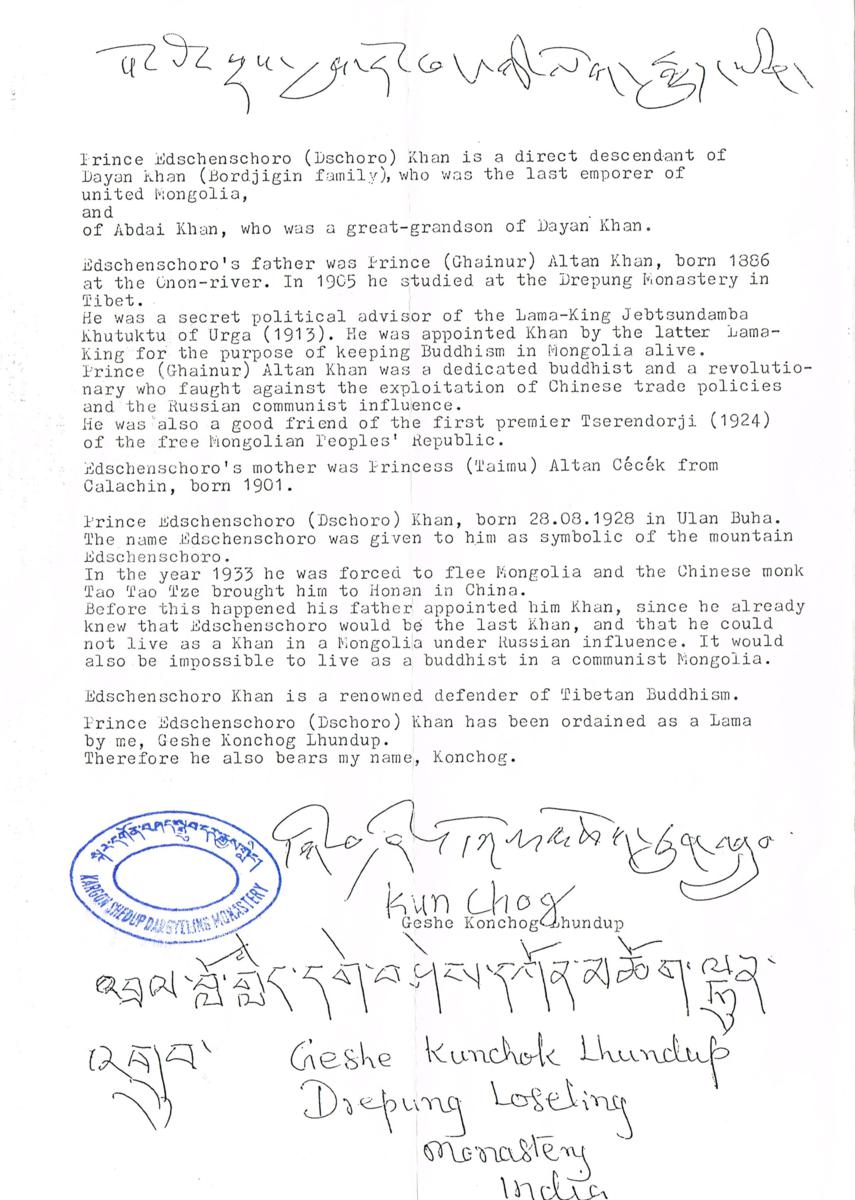 Prince Edschenschoro (Dschoro) Khan is a direct descendant of
Dayan Khan (Bordjigin family), who was the last emporer of
united Mongolia,
and
of Abdai Khan, who was a great-grandson of Dayan Khan.
Edschenschoro's father was Prince (Ghainur) Altan Khan, born 1886
at the Onon-river. In 1905 he studied at the Drepung Monastery in
Tibet.
He was a secret political advisor of the Lama-King Jebtsundamba
Khutuktu of Urga (1913). He was appointed Khan by the latter Lama-
King for the purpose of keeping Buddhism in Mongolia alive.
Prince (Ghainur) Altan Khan was a dedicated buddhist and a revolutio-
nary who faught against the exploitation of Chinese trade policies
and the Russian communist influence.
He was also a good friend of the first premier Tserendorji (1924)
of the free Mongolian Peoples' Republic.
Edschenschoro's mother was Princess (Taimu) Altan Cécék from
Calachin, born 1901.
Prince Edschenschoro (Dschoro) Khan, born 28.08.1928 in Ulan Buha.
The name Edschenschoro was given to him as symbolic of the mountain
Edschenschoro.
In the year 1933 he was forced to flee Mongolia and the Chinese monk
Tao Tao Tze brought him to Honan in China.
Before this happened his father appointed him Khan, since he already
knew that Edschenschoro would be the last Khan, and that he could
not live as a Khan in a Mongolia under Russian influence. It would
also be impossible to live as a buddhist in a communist Mongolia.
Edschenschoro Khan is a renowned defender of Tibetan Buddhism.
Prince Edschenschoro (Dschoro) Khan has been ordained as a Lama
by me, Geshe Konchog Lhundup.
Therefore he also bears my name, Konchog.
KARGON SHEDUP DARGYELING MONASTERY
Kun Chog
Geshe Konchog Lhundup
དཀོན་མཆོག་
Geshe Kunchok Lhundup
Drepung Loseling
Monastery
India